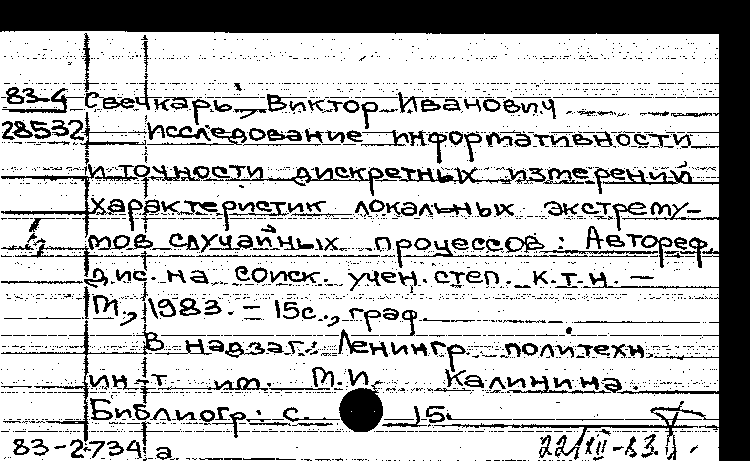 83-4 Свечкарь, Виктор Иванович
28532 Исследование информативности
и точности дискретных измерений
характеристик локальных экстрему-
мов случайных процессов: Автореф.
дис. на соиск. учен. степ. к.т.н. —
М., 1983. - 15с., граф.
В надзаг.: Ленингр. политехн.
ин-т им. М.И. Калинина.
Библиогр.: с. 15.
83-2734 а 22/XII-83.